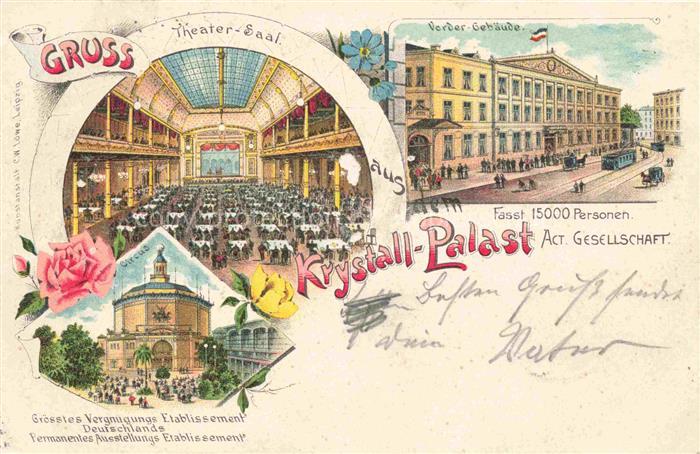 GRUSS
Theater-Saal.
Vorder-Gebäude.
aus dem
Fasst 15000 Personen.
Krystall-Palast ACT. GESELLSCHAFT.
Circus
Grösstes Vergnügungs Etablissement
Deutschlands
Permanentes Ausstellungs Etablissement
Kunstanstalt C.W. Löwe, Leipzig
besten Gruß sendet
dein Vater